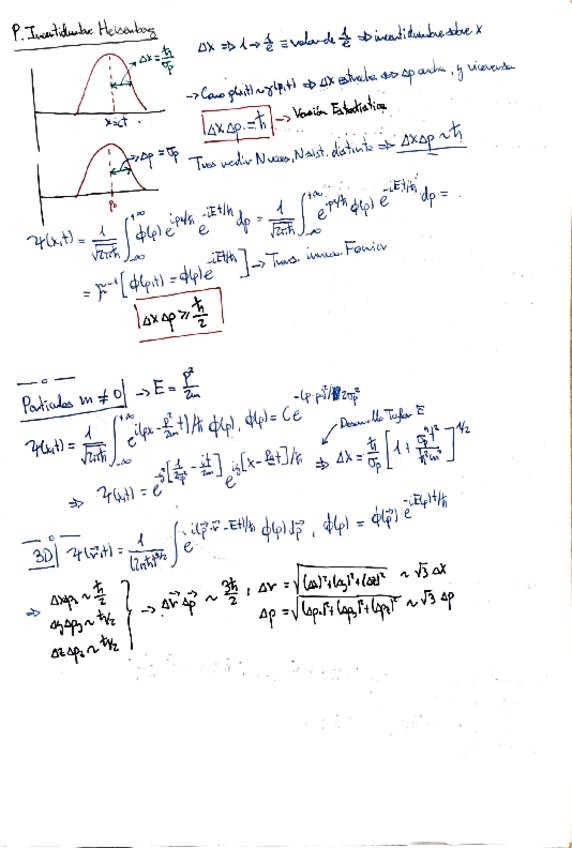 P. Incertidumbre Heisenberg
Δx = ħ/σp
x=ct
Δx ⇒ 1 → 1/e ≡ valor de 1/e ⇒ incertidumbre sobre x
⇒ Δx estrecha ⇔ Δp ancha, y viceversa
Δx Δp = ħ → Versión Estadística
Δp = σp
p₀
distinto ⇒ Δx Δp ~ ħ
Ψ(x,t) = 1/√(2πħ) ∫_{-∞}^{+∞} ϕ(p) e^{ipx/ħ} e^{-iEt/ħ} dp = 1/√(2πħ) ∫_{-∞}^{+∞} e^{ipx/ħ} ϕ(p) e^{-iEt/ħ} dp =
= F⁻¹[ϕ(p,t) = ϕ(p) e^{-iEt/ħ}] → Trans. inversa Fourier
Δx Δp ≥ ħ/2
Partículas m ≠ 0 → E = p²/2m
Ψ(x,t) = 1/√(2πħ) ∫_{-∞}^{+∞} e^{i(px - p²/2m t)/ħ} ϕ(p), ϕ(p) = C e^{-(p-p₀)²/2σp²}
Desarrollo Taylor E
⇒ Δx = ħ/σp [1 + σp⁴t²/ħ²m²]^{1/2}
3D Ψ(r⃗,t) = 1/(2πħ)^{3/2} ∫ e^{i(p⃗·r⃗ - Et)/ħ} ϕ(p⃗) dp⃗, ϕ(p) = ϕ(p⃗) e^{-iE(p)t/ħ}
⇒ Δx Δpx ~ ħ/2
Δy Δpy ~ ħ/2
Δz Δpz ~ ħ/2
→ Δr⃗ Δp⃗ ~ 3ħ/2 : Δr = √((Δx)²+(Δy)²+(Δz)²) ~ √3 Δx
Δp = √((Δpx)²+(Δpy)²+(Δpz)²) ~ √3 Δp